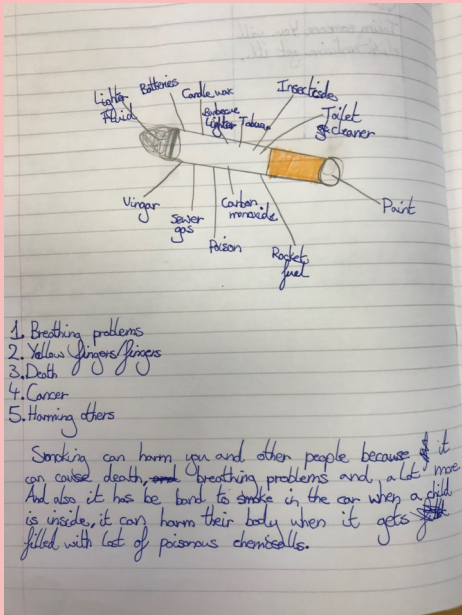 Lighter Fluid
Batteries
Candle wax
Barbecue Lighter
Tobacco
Insecticides
Toilet cleaner
Vingar
Sewer gas
Poison
Carbon monoxide
Rocket fuel
Paint
1. Breathing problems
2. Yellow fingers/fingers
3. Death
4. Cancer
5. Harming others
Smoking can harm you and other people because it
can cause death, breathing problems and, a lot more
And also it has be band to smoke in the car when a child
is inside, it can harm their body when it gets
filled with lost of poisonous chemiselles.